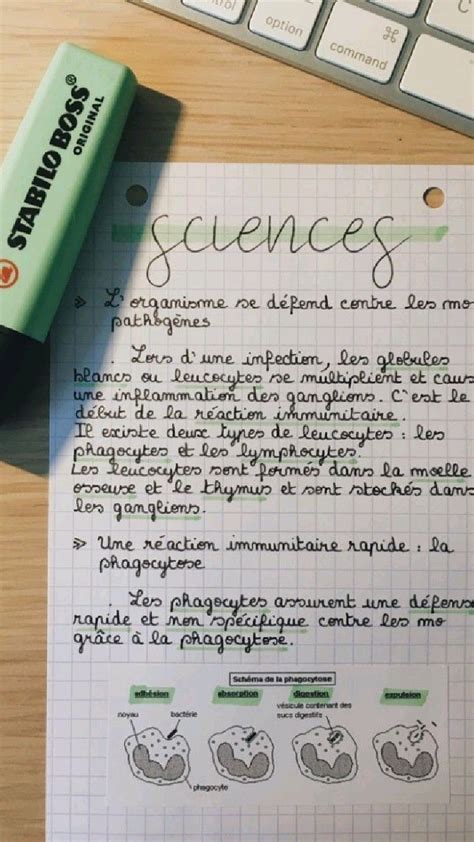 control
option
command
⌘
C
STABILO BOSS®
ORIGINAL
sciences
» L'organisme se défend contre les mo
pathogènes
. Lors d'une infection, les globules
blancs ou leucocytes se multiplient et caus
une inflammation des ganglions. C'est le
début de la réaction immunitaire.
Il existe deux types de leucocytes : les
phagocytes et les lymphocytes.
Les leucocytes sont formés dans la moelle
osseuse et le thymus et sont stockés dans
les ganglions.
» Une réaction immunitaire rapide : la
phagocytose
. Les phagocytes assurent une défense
rapide et non spécifique contre les mo
grâce à la phagocytose.
Schéma de la phagocytose
adhésion absorption digestion expulsion
noyau bactérie vésicule contenant des
sucs digestifs
phagocyte